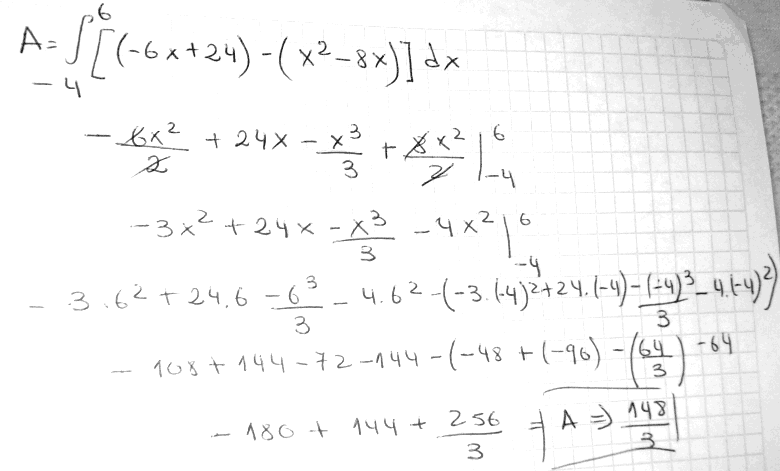 A = ∫_{-4}^{6} [(-6x+24) - (x²-8x)] dx
- 6x²/2 + 24x - x³/3 + 8x²/2 |_{-4}^{6}
-3x² + 24x - x³/3 - 4x² |_{-4}^{6}
- 3.6² + 24.6 - 6³/3 - 4.6² - (-3.(-4)² + 24.(-4) - (-4)³/3 - 4.(-4)²)
- 108 + 144 - 72 - 144 - (-48 + (-96) - (64/3) - 64
- 180 + 144 + 256/3 = A ⇒ 148/3